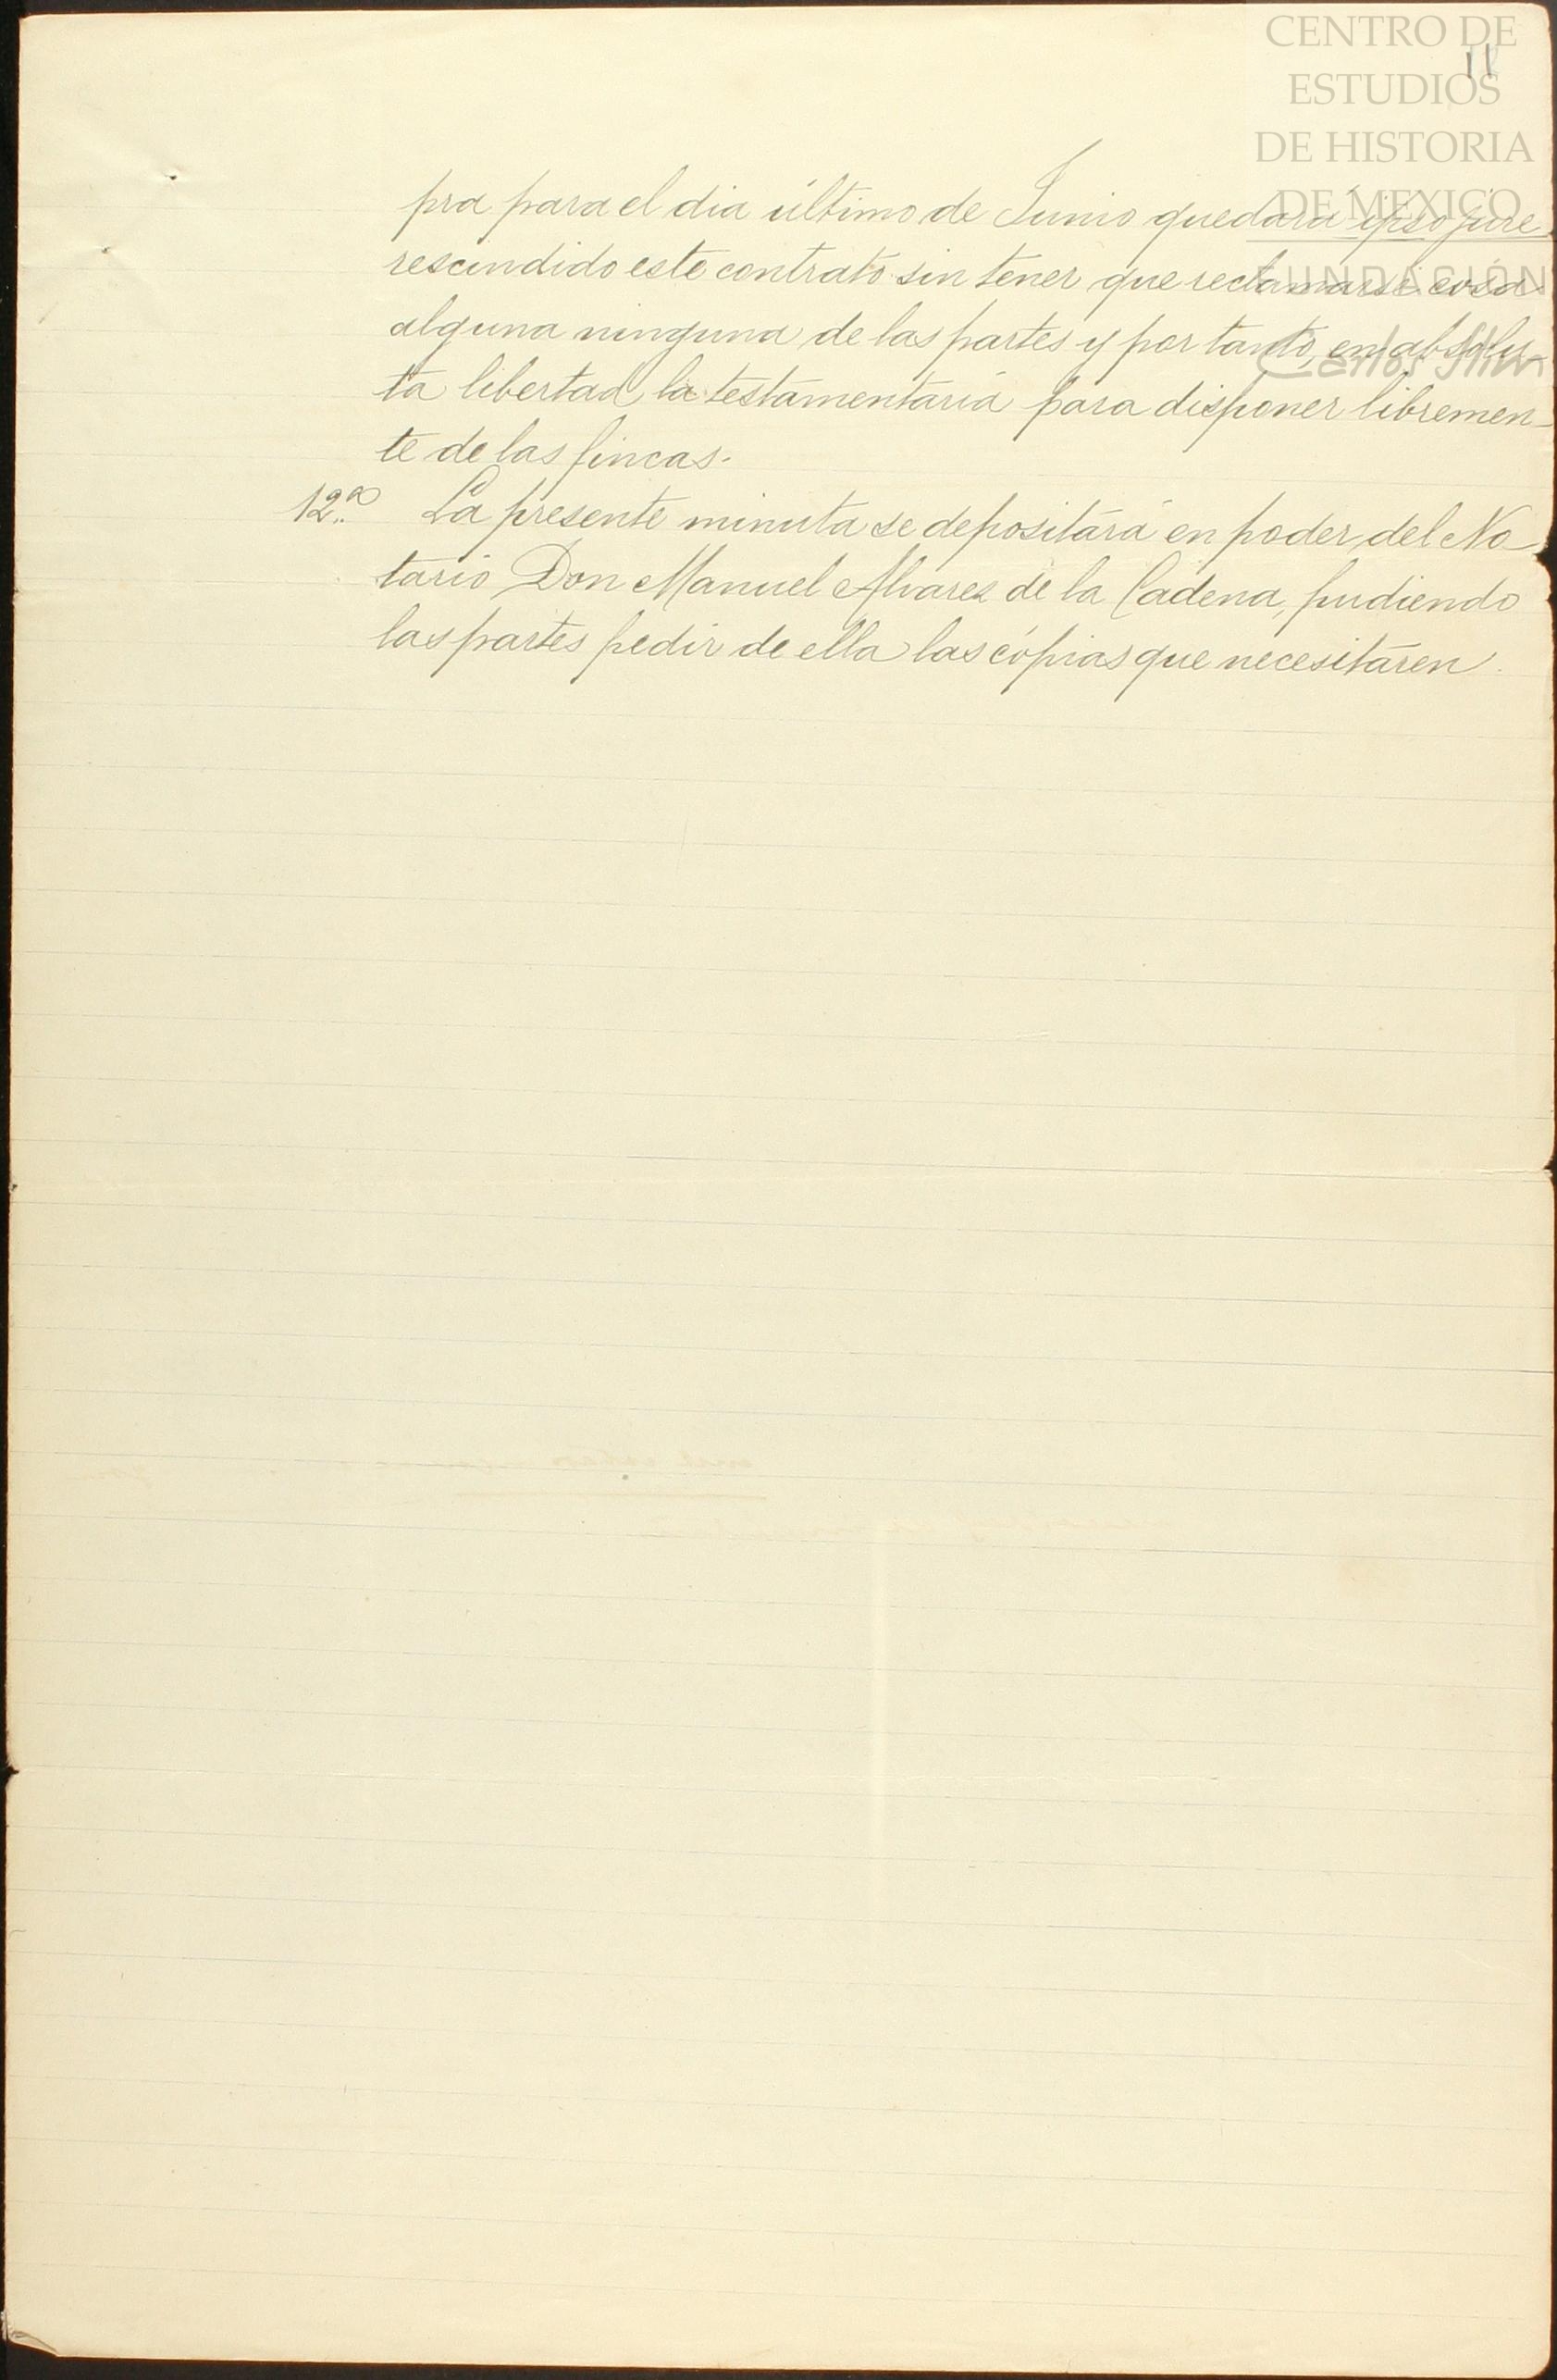 CENTRO DE
ESTUDIOS
DE HISTORIA
DE MEXICO
FUNDACIÓN
Carlos Slim
11
pra para el dia último de Junio quedará ipso jure
rescindido este contrato sin tener que reclamarse cosa
alguna ninguna de las partes y por tanto, en absolu-
ta libertad la testamentaria para disponer libremen-
te de las fincas.
12.a La presente minuta se depositará en poder del No-
tario Don Manuel Alvarez de la Cadena, pudiendo
las partes pedir de ella las cópias que necesitáren.